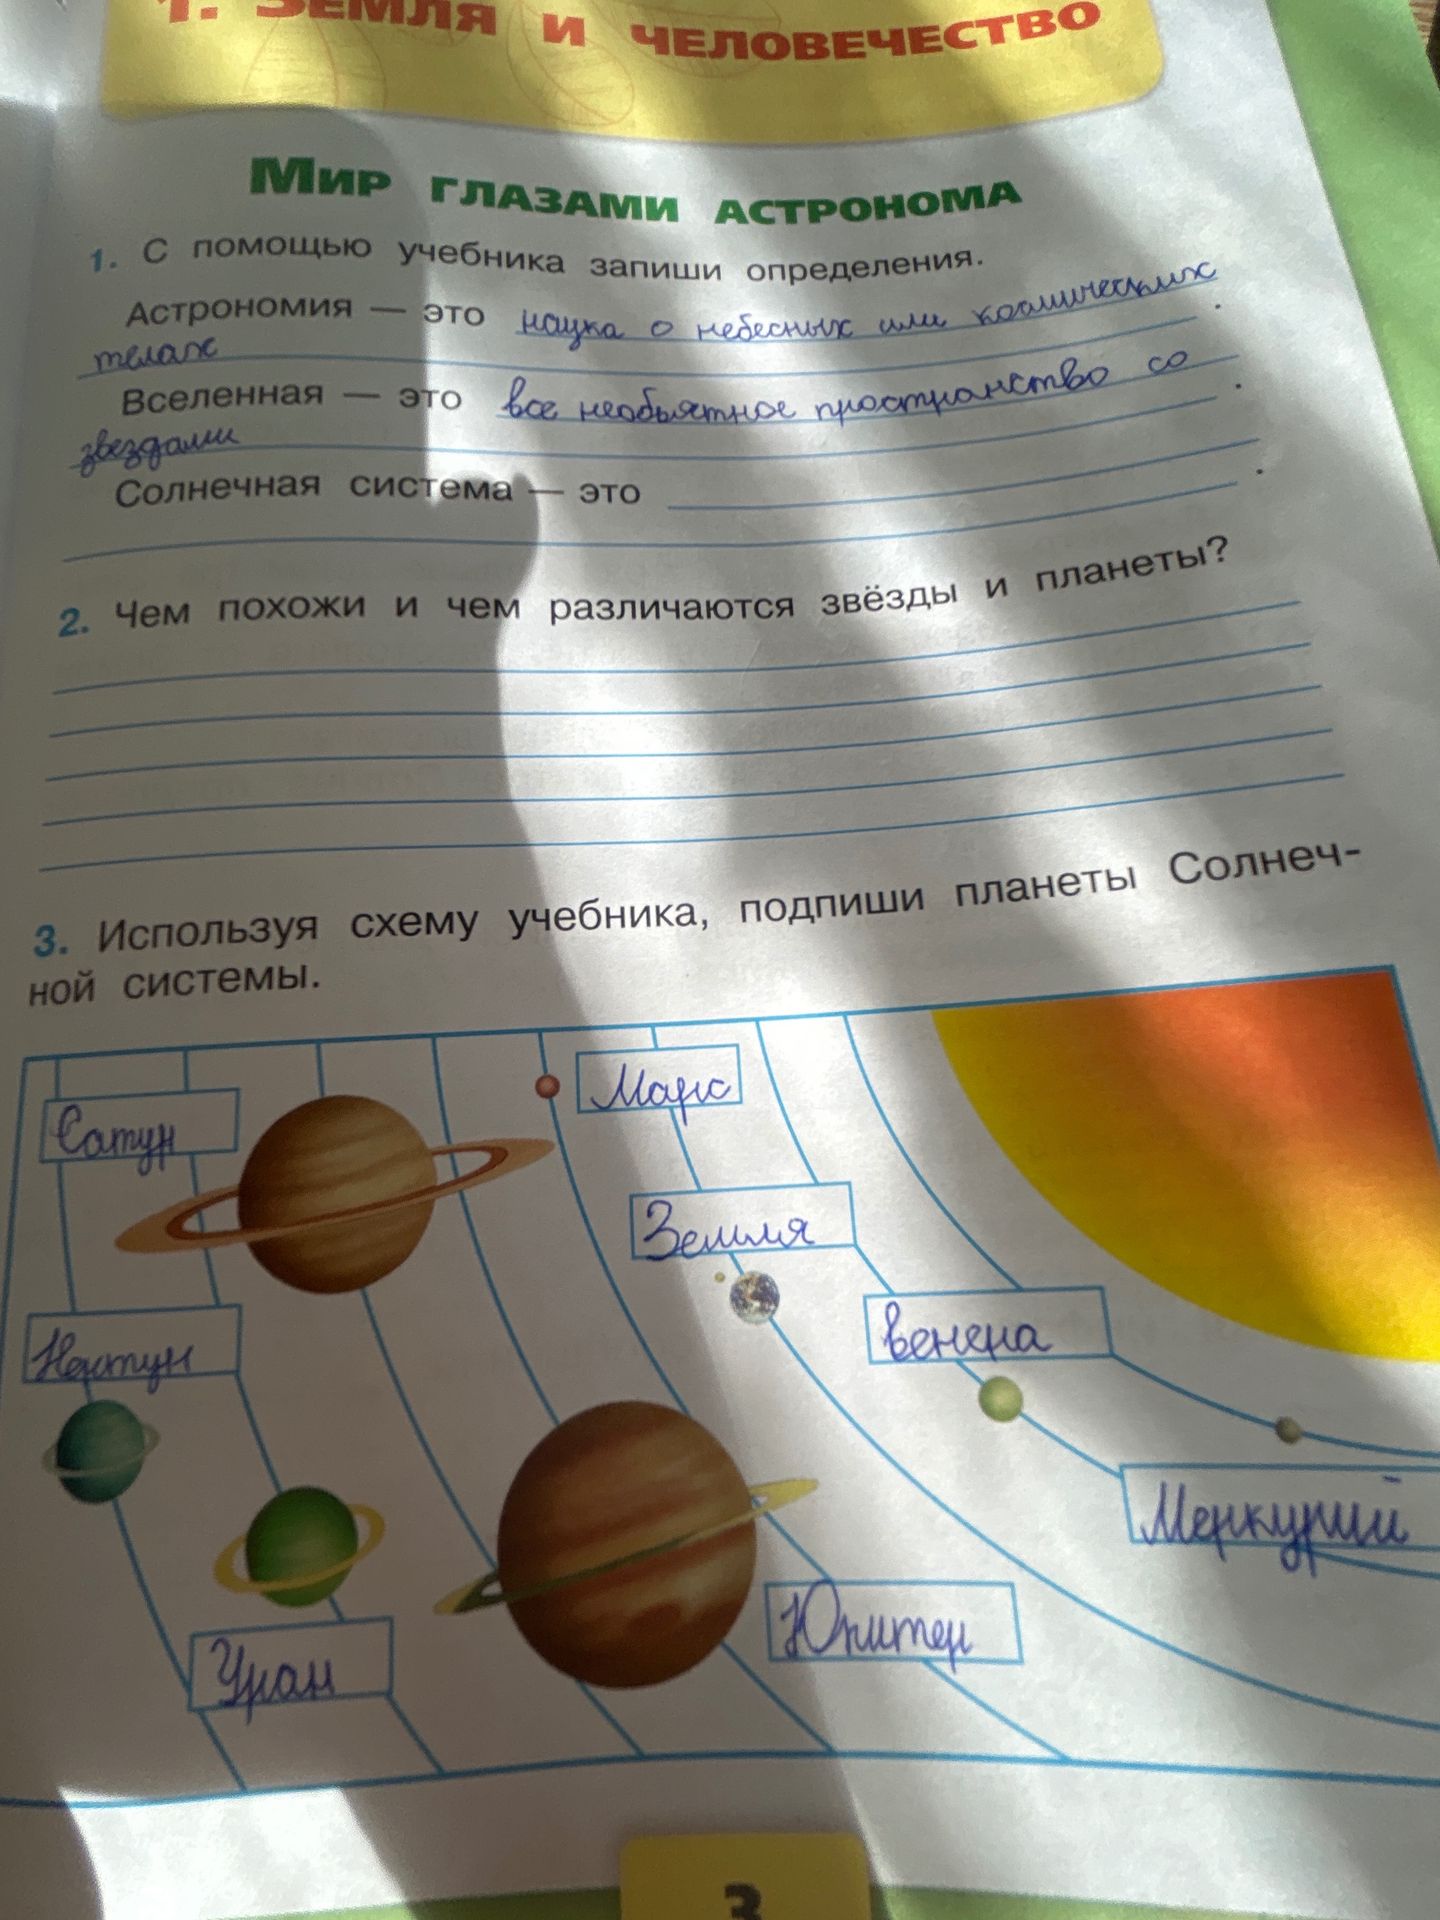 1. ЗЕМЛЯ И ЧЕЛОВЕЧЕСТВО
МИР ГЛАЗАМИ АСТРОНОМА
1. С помощью учебника запиши определения.
Астрономия — это наука о небесных или космических
телах.
Вселенная — это все необъятное пространство со
звездами.
Солнечная система — это
.
2. Чем похожи и чем различаются звёзды и планеты?
3. Используя схему учебника, подпиши планеты Солнеч-
ной системы.
Марс
Сатурн
Земля
венера
Нептун
Меркурий
Юпитер
Уран
3